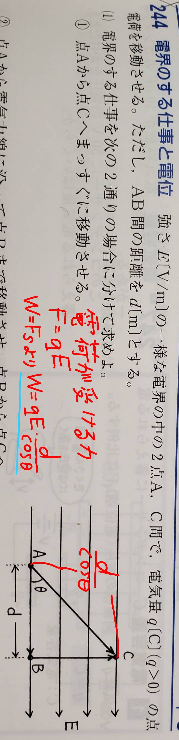 244 電界のする仕事と電位 強さE[V/m]の一様な電界の中の2点A, C間で, 電気量q[C](q>0)の点
電荷を移動させる。ただし, AB間の距離をd[m]とする。
(1) 電界のする仕事を次の2通りの場合に分けて求めよ。
① 点Aから点Cへまっすぐに移動させる。
電荷が受ける力
F=qE
W=Fsより W=qE・d/cosθ
d/cosθ
A
θ
B
C
E
d